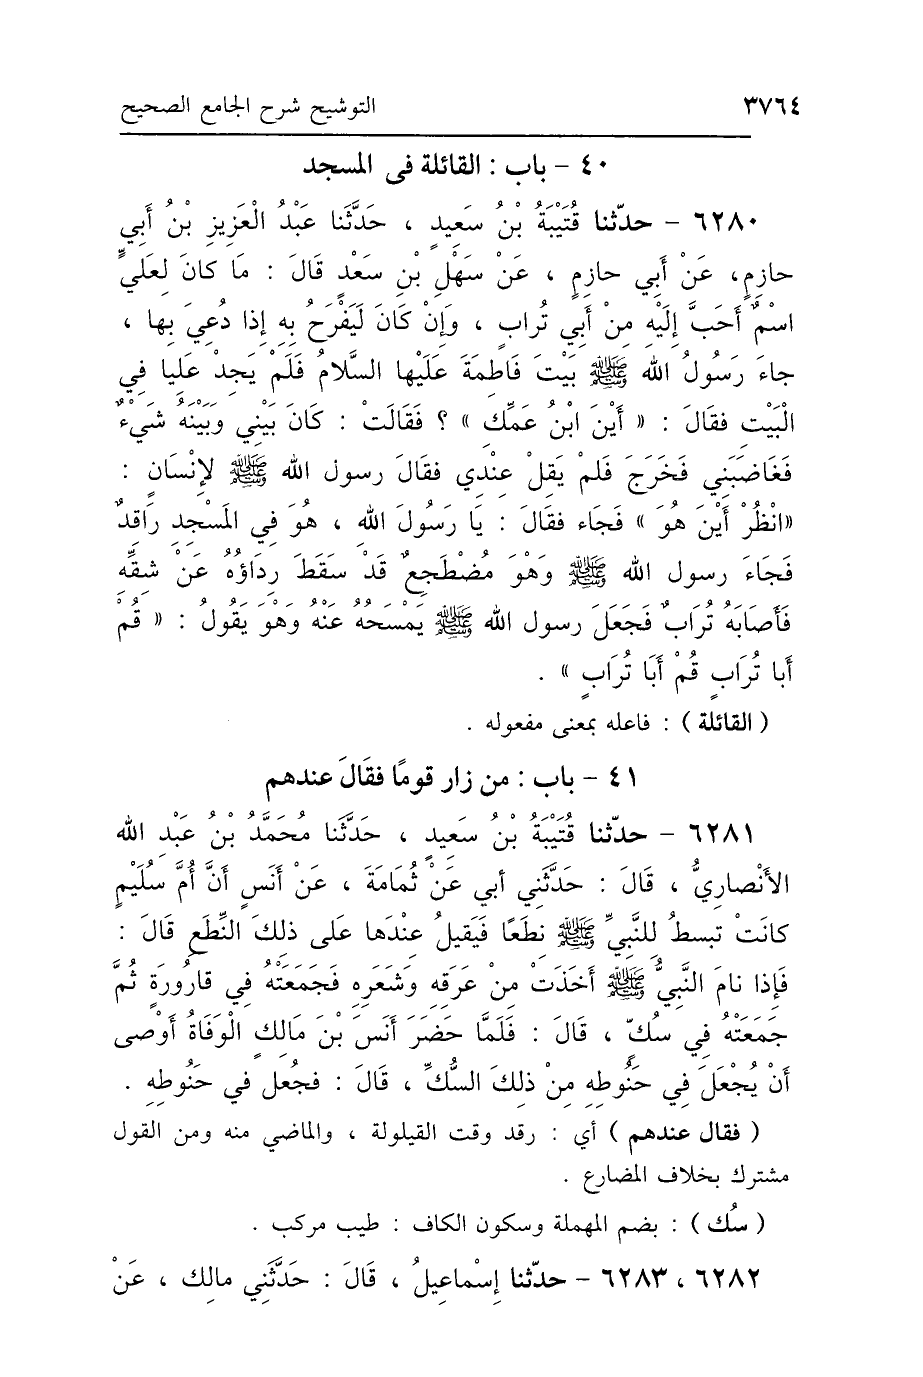 ٣٧٦٤ التوشيح شرح الجامع الصحيح
٤٠ - باب : القائلة في المسجد
٦٢٨٠ - حدّثنا قُتَيْبَةُ بْنُ سَعِيدٍ ، حَدَّثَنا عَبْدُ الْعَزِيزِ بْنُ أَبي
حازِمٍ، عَنْ أَبي حازِمٍ ، عَنْ سَهْلِ بْنِ سَعْدٍ قَالَ : مَا كانَ لِعَلَيٍّ
اسْمٌ أَحَبَّ إِلَيْهِ مِنْ أَبي تُرابٍ ، وَإِنْ كَانَ لَيَفْرَحُ بِهِ إذا دُعِيَ بِها ،
جاءَ رَسُولُ الله ﷺ بَيْتَ فَاطِمَةَ عَلَيْها السَّلامُ فَلَمْ يَجِدْ عَلِيا فِي
الْبَيْتِ فقَالَ : « أَيْنَ ابْنُ عَمِّكِ » ؟ فَقَالَتْ : كَانَ بَيْنِي وَبَيْنَهُ شَيْءٌ
فَغَاضَبَنِي فَخَرَجَ فَلمْ يَقِلْ عِنْدِي فقَالَ رسول الله ﷺ لإِنْسَانٍ :
«انْظُرْ أَيْنَ هُوَ » فَجَاء فقَالَ : يَا رَسُولَ اللهِ ، هُوَ فِي المَسْجِدِ رَاقِدٌ
فَجَاءَ رسول الله ﷺ وَهْوَ مُضْطَجِعٌ قَدْ سَقَطَ رِدَاؤُهُ عَنْ شِقِّهِ
فَأَصَابَهُ تُرَابٌ فَجَعَلَ رسول الله ﷺ يَمْسَحُهُ عَنْهُ وَهْوَ يَقُولُ : « قُمْ
أبا تُرَابٍ قُمْ أَبَا تُرَابٍ » .
( القائلة ) : فاعله بمعنى مفعوله .
٤١ - باب : من زار قومًا فقَالَ عندهم
٦٢٨١ - حدّثنا قُتَيْبَةُ بْنُ سَعِيدٍ ، حَدَّثَنا مُحَمَّدُ بْنُ عَبْدِ الله
الأَنْصارِيُّ ، قَالَ : حَدَّثَنِي أبي عَنْ ثُمَامَةَ ، عَنْ أَنَسٍ أَنَّ أُمَّ سُلَيْمٍ
كانَتْ تبسطُ لِلنَّبِيِّ ﷺ نِطَعًا فَيَقِيلُ عِنْدَها عَلى ذلِكَ النِّطَعِ قَالَ :
فَإِذا نامَ النَّبِيُّ ﷺ أَخَذَتْ مِنْ عَرَقِهِ وَشَعَرِهِ فَجَمَعَتْهُ فِي قارُورَةٍ ثُمَّ
جَمَعَتْهُ فِي سُكٍّ ، قَالَ : فَلَمَّا حَضَرَ أَنَسَ بْنَ مَالِكٍ الْوَفَاةُ أَوْصى
أَنْ يُجْعَلَ فِي حَنُوطِهِ مِنْ ذلِكَ السُّكِّ ، قَالَ : فجُعِل في حَنُوطِهِ .
( فقال عندهم ) أي : رقد وقت القيلولة ، والماضي منه ومن القول
مشترك بخلاف المضارع .
( سُك ) : بضم المهملة وسكون الكاف : طيب مركب .
٦٢٨٢ ، ٦٢٨٣ - حدّثنا إِسْماعِيلُ ، قَالَ : حَدَّثَنِي مالِك ، عَنْ